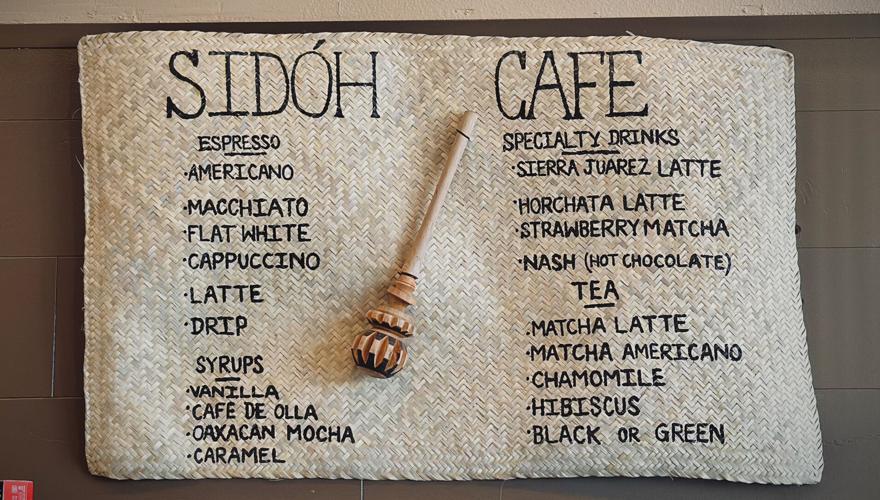 SIDÓH CAFE
ESPRESSO
·AMERICANO
·MACCHIATO
·FLAT WHITE
·CAPPUCCINO
·LATTE
·DRIP
SYRUPS
·VANILLA
·CAFÉ DE OLLA
·OAXACAN MOCHA
·CARAMEL
SPECIALTY DRINKS
·SIERRA JUAREZ LATTE
·HORCHATA LATTE
·STRAWBERRY MATCHA
·NASH (HOT CHOCOLATE)
TEA
·MATCHA LATTE
·MATCHA AMERICANO
·CHAMOMILE
·HIBISCUS
·BLACK OR GREEN